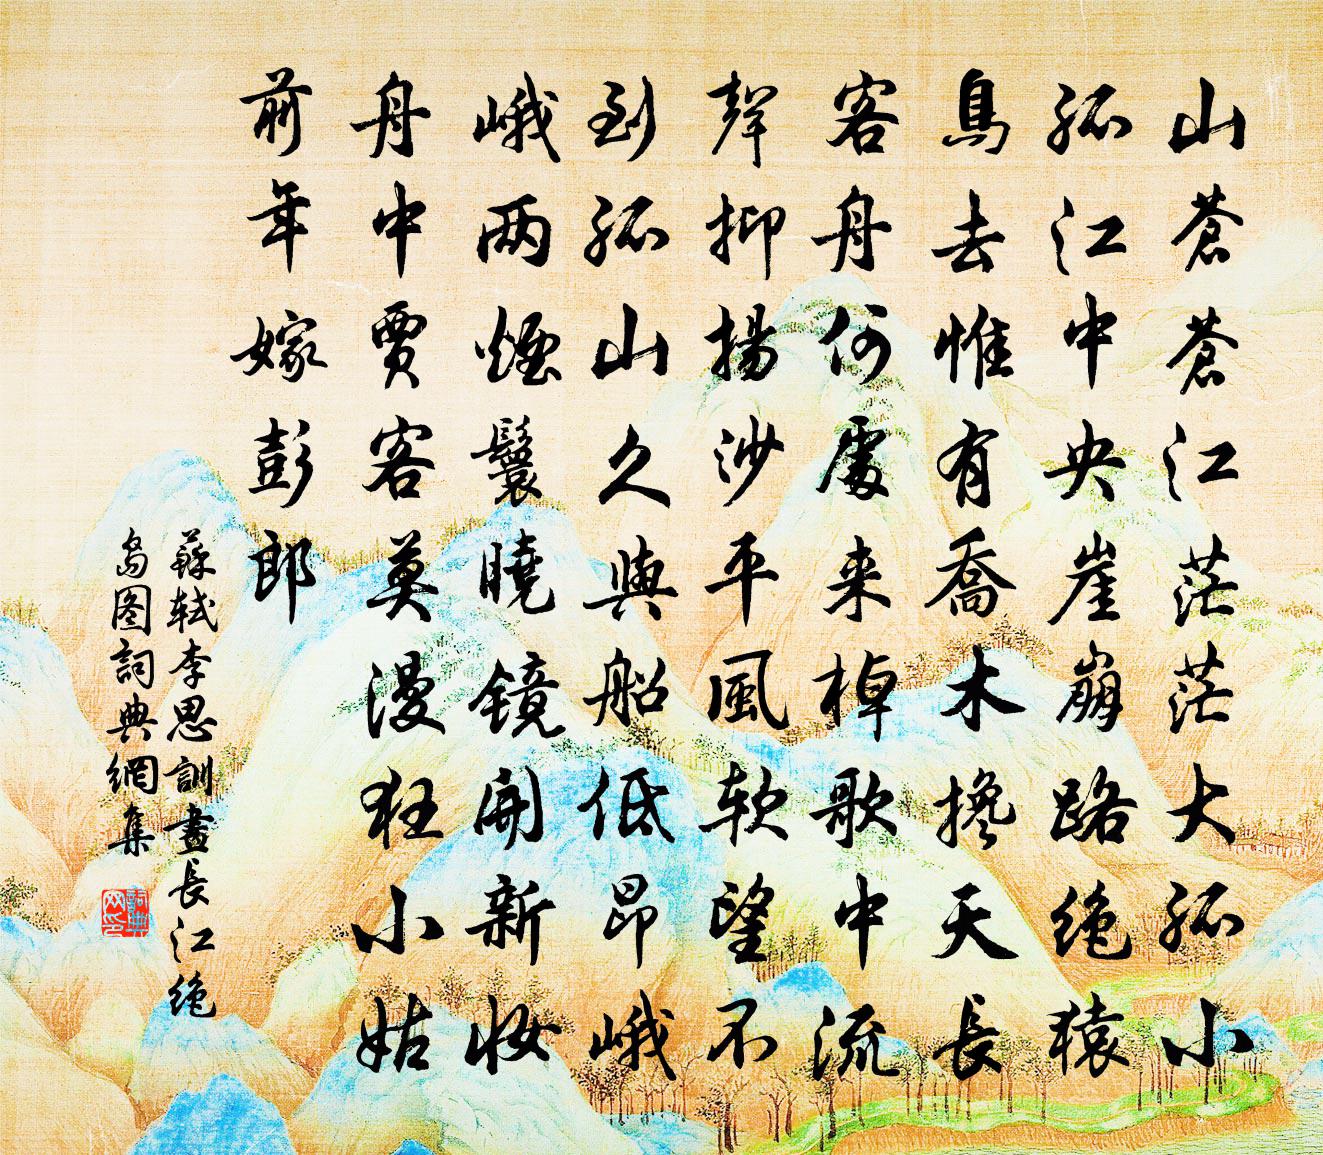 山蒼蒼江茫茫大孤小
孤江中央崖崩路绝猿
鳥去惟有喬木搀天長
客舟何處来棹歌中流
聲抑揚沙平風软望不
到孤山久與船低昂峨
峨两煙鬟曉镜開新妆
舟中贾客莫漫狂小姑
前年嫁彭郎
蘇轼李思訓畫長江绝
島图詞典網集
詞典
网印